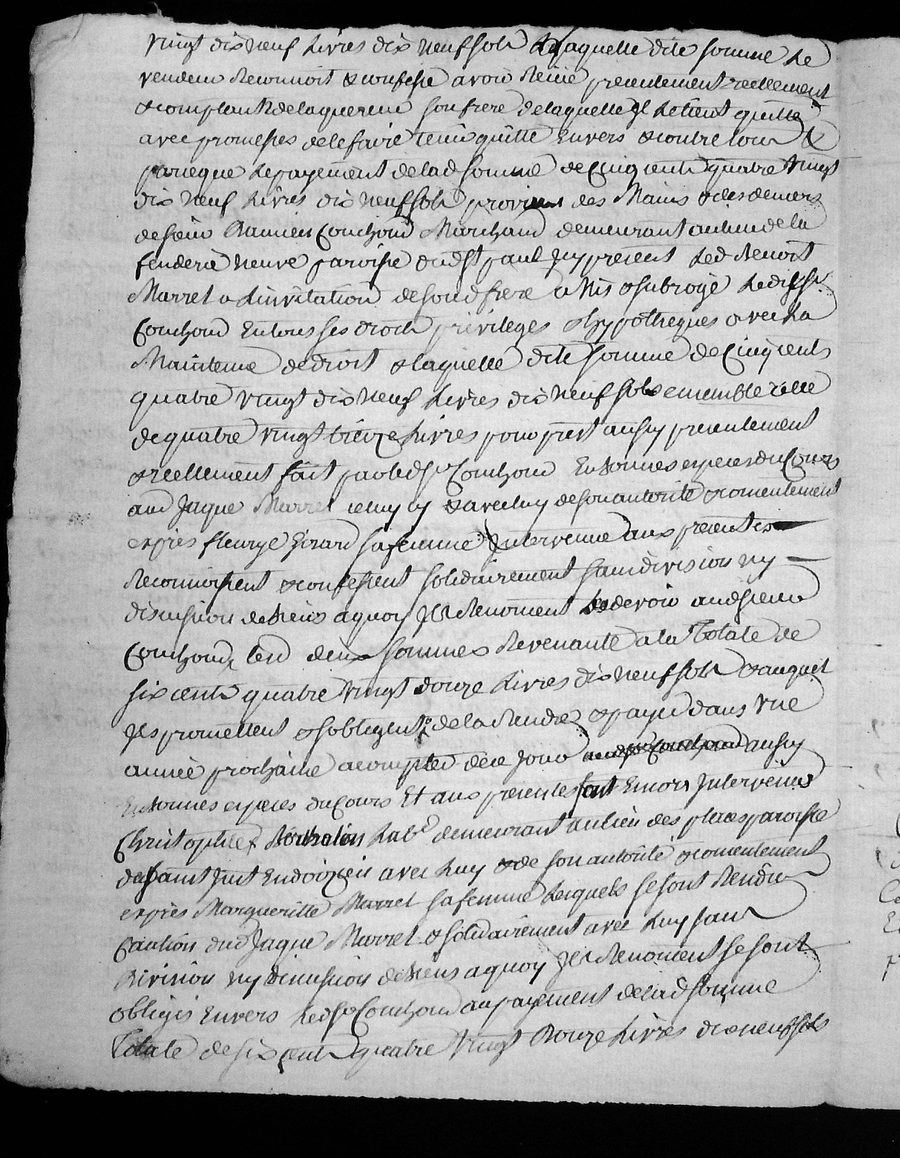 vingt dix neuf Livres dix neuf sols Laquelle dite somme Le
vendeur Reconnoit & confesse avoir Receu presentement & reellement
& comptant de lacquereur son frere de laquelle Il le tient quitte
avec promesses de le faire tenir quitte Envers & contre tous &
parceque Le payement de lad somme de Cinq cents quatre vingt
dix neuf Livres dix neuf sols provient des Mains & des deniers
de sieur Damien Couchoud Marchand demeurant au lieu de la
fenderie neuve paroisse dud St paul Icy present Led Benoit
Marret a Linvitation de sond frere a Mis & subrogé Led Sr
Couchoud En tous ses droits privileges & hypotheques avec La
Maintenue de droit & laquelle dite somme de Cinq cents
quatre vingt dix neuf Livres dix neuf sols ensemble celle
de quatre vingt treize Livres pour prest aussy presentement
& reellement fait par led Sr Couchoud En bonnes especes du Cours
aud Jaque Marret celuy cy & avec luy de son autorité & consentement
exprès fleurye Girard sa femme Intervenue aux presentes
Reconnoissent & confessent solidairement sans division ny
discussion de biens a quoy Ils Renoncent devoir aud sieur
Couchoud les d deux sommes Revenante a la Totale de
six cents quatre vingt douze Livres dix neuf sols & auquel
Ils promettent & sobligent de la Rendre & payer dans une
année prochaine a compter de ce Jour aud Sr Couchoud aussy
En bonnes especes du Cours Et aux presentes sont Encore Intervenus
Christophle Bertholon Labr demeurant au lieu des places paroisse
de saint Just En doizieu avec Luy & de son autorité & consentement
exprès Margueritte Marret sa femme Lesquels se sont Rendus
Caution dud Jaque Marret & solidairement avec Luy sans
Division ny discussion de biens a quoy Ils Renoncent se sont
obligés Envers Led Sr Couchoud au payement de lad somme
Totale de six cents quatre vingt Douze Livres dix neuf sols